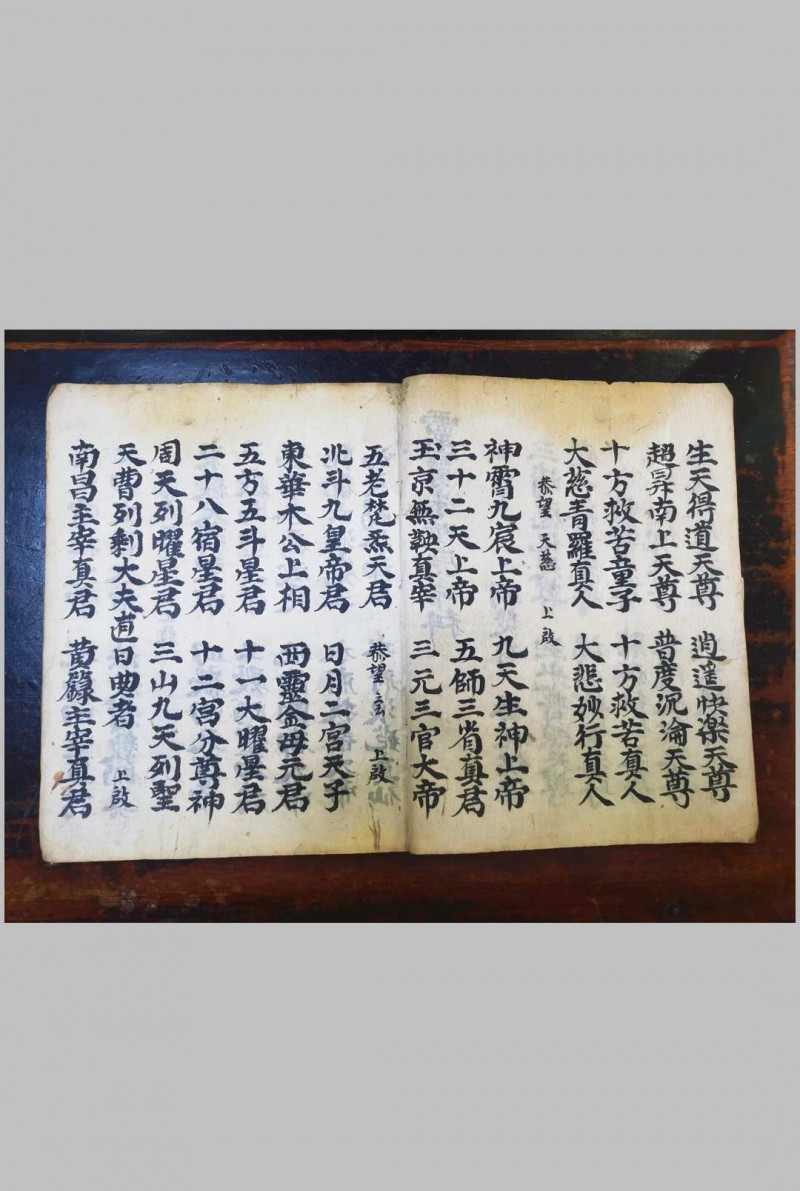 生天得道天尊 逍遥快楽天尊
超昇南上天尊 普度沉淪天尊
十方救苦童子 十方救苦真人
大慈青羅真人 大悲妙行真人
恭望 天慈 上啟
神霄九宸上帝 九天生神上帝
三十二天上帝 五師三省真君
玉京無鞅真宰 三元三官大帝
五老梵炁天君 恭望 玄 上啟
北斗九皇帝君 日月二宮天子
東華木公上相 西靈金母元君
五方五斗星君 十一大曜星君
二十八宿星君 十二宮分尊神
周天列曜星君 三山九天列聖
天曹列剩大夫 道日 者 上啟
南昌主宰真君 黄籙主宰真君